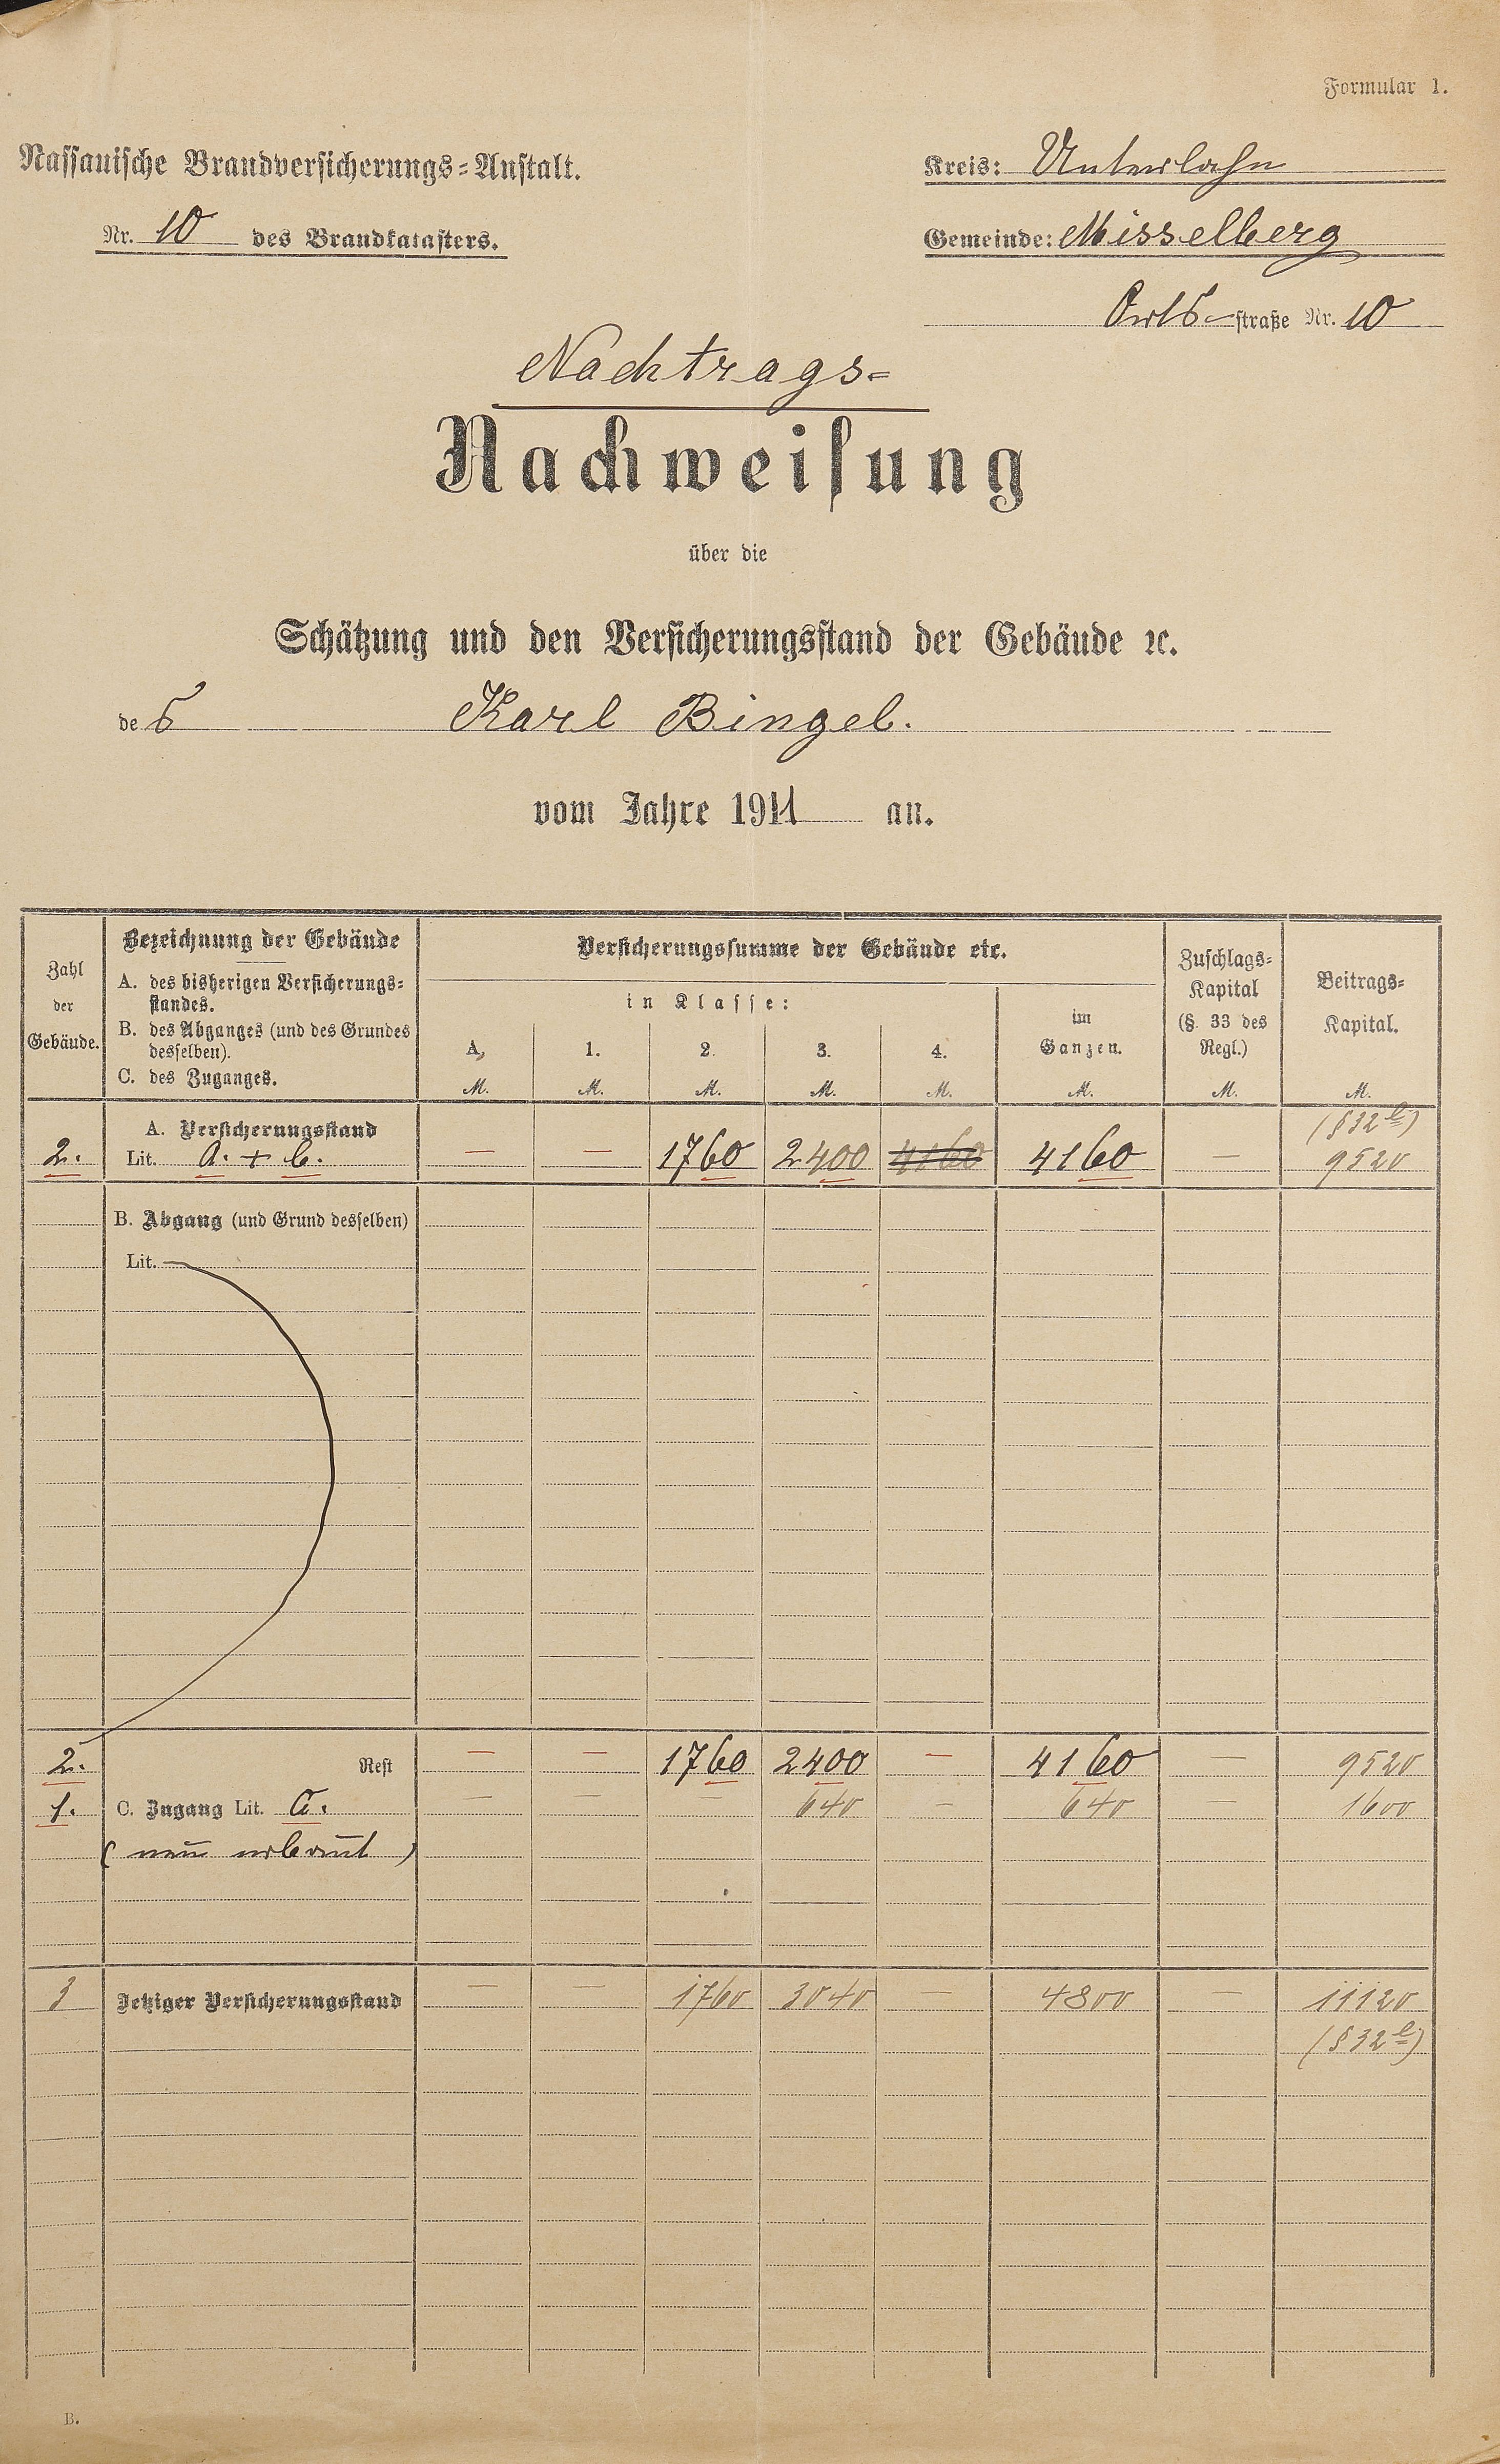 Formular 1.
Nassauische Brandversicherungs-Anstalt.
Nr. 10 des Brandkatasters.
Kreis: Unterlahn
Gemeinde: Misselberg
Orts-straße Nr. 10
Nachtrags-
Nachweisung
über die
Schätzung und den Versicherungsstand der Gebäude ꝛc.
des Karl Bingel.
vom Jahre 1911 an.
Zahl
der
Gebäude.
Bezeichnung der Gebäude
A. des bisherigen Versicherungs-
standes.
B. des Abganges (und des Grundes
desselben).
C. des Zuganges.
Versicherungssumme der Gebäude etc.
in Klasse:
A, 1. 2. 3. 4.
im
Ganzen.
Zuschlags-
Kapital
(§. 33 des
Regl.)
Beitrags-
Kapital.
M. M. M. M. M. M. M. M.
A. Versicherungsstand (§ 32 e)
2. Lit. a. + b. — — 1760 2400 4160 4160 — 9520
B. Abgang (und Grund desselben)
Lit.
2. Rest — — 1760 2400 — 4160 — 9520
1. C. Zugang Lit. c. — — — 640 — 640 — 1600
(neu erbaut)
3 Jetziger Versicherungsstand — — 1760 3040 — 4800 — 11120
(§ 32 e)
B.